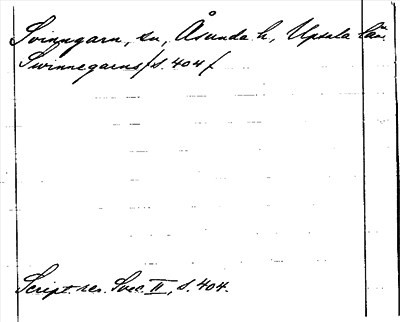 Svinngarn, sn, Åsunda h, Upsala län.
Swinnegarns /s. 404/.
Script. rer. Svec. II, s. 404.